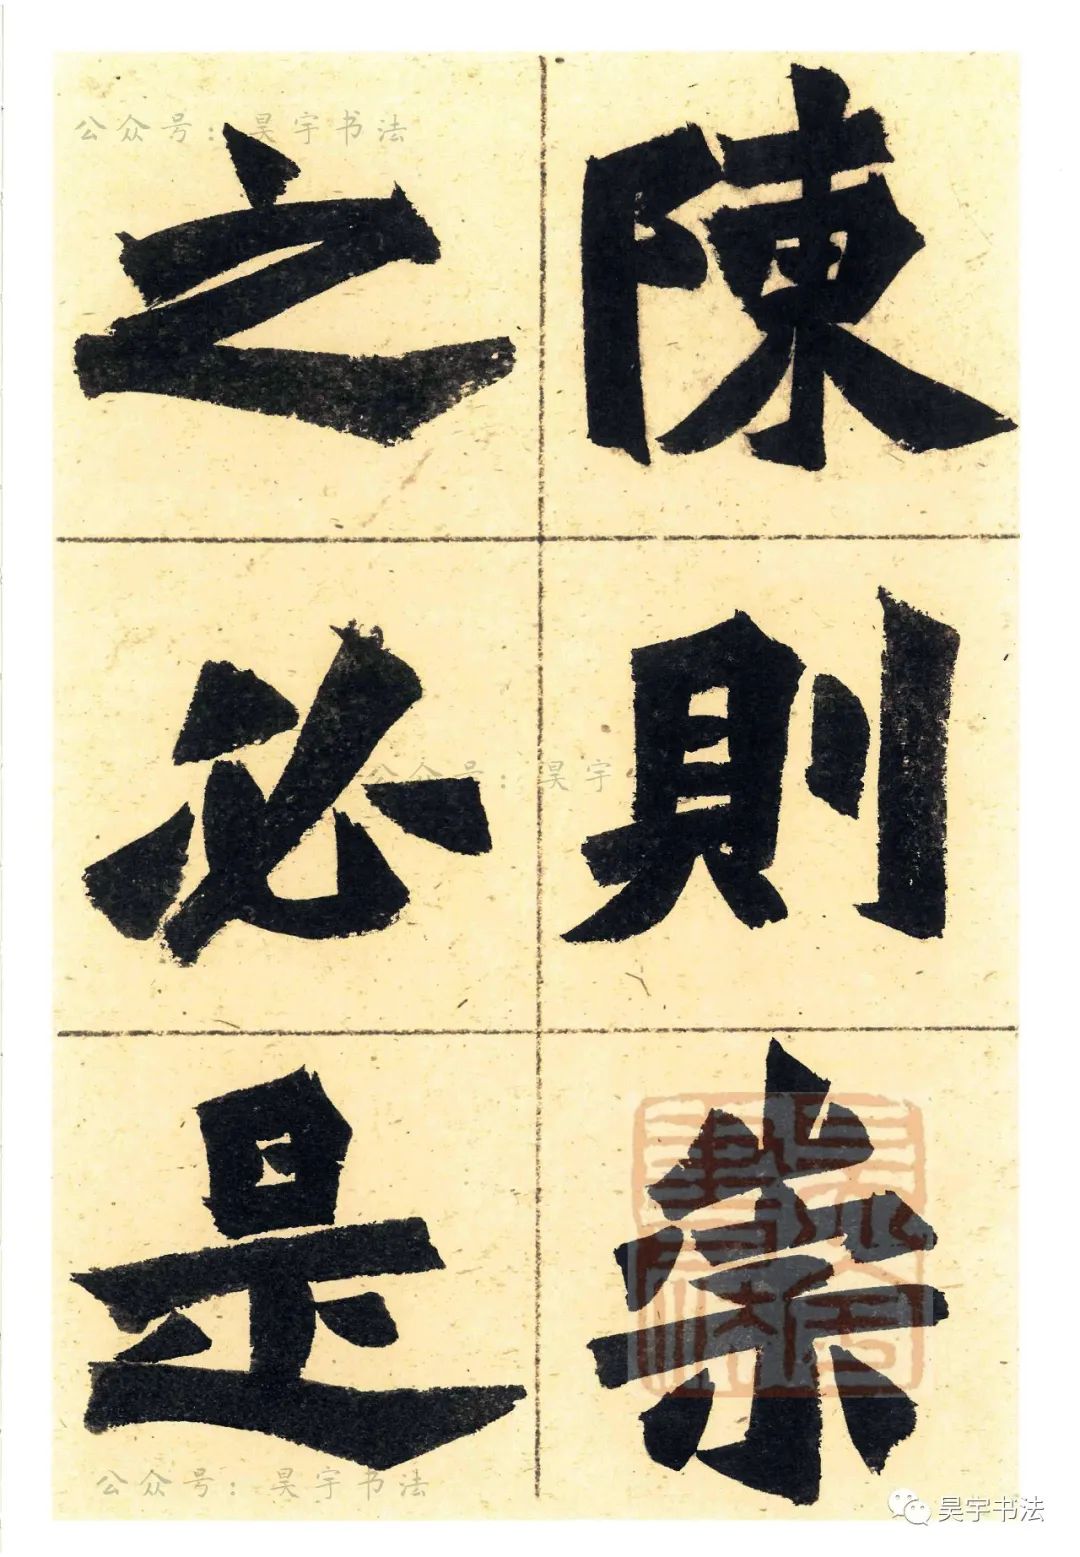 陳則崇
之必是
公众号：昊宇书法
公众号：昊宇
公众号：昊宇书法
昊宇书法